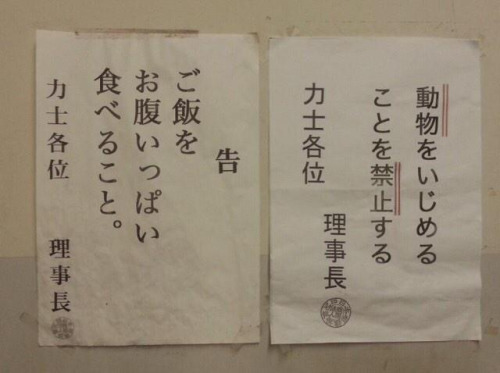 告
ご飯を
お腹いっぱい
食べること。
力士各位
理事長
動物をいじめる
ことを禁止する
力士各位
理事長